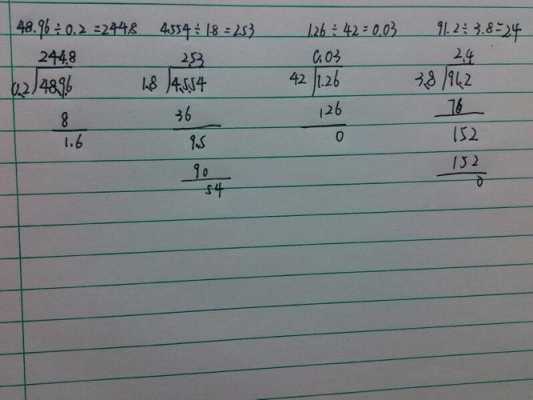 48.96÷0.2=244.8 4.554÷1.8=2.53 1.26÷42=0.03 91.2÷3.8=24
244.8 2.53 0.03 2.4
0.2 48.96 1.8 4.554 42 1.26 3.8 91.2
8 36 126 76
1.6 9.5 0 152
90 152
54 0